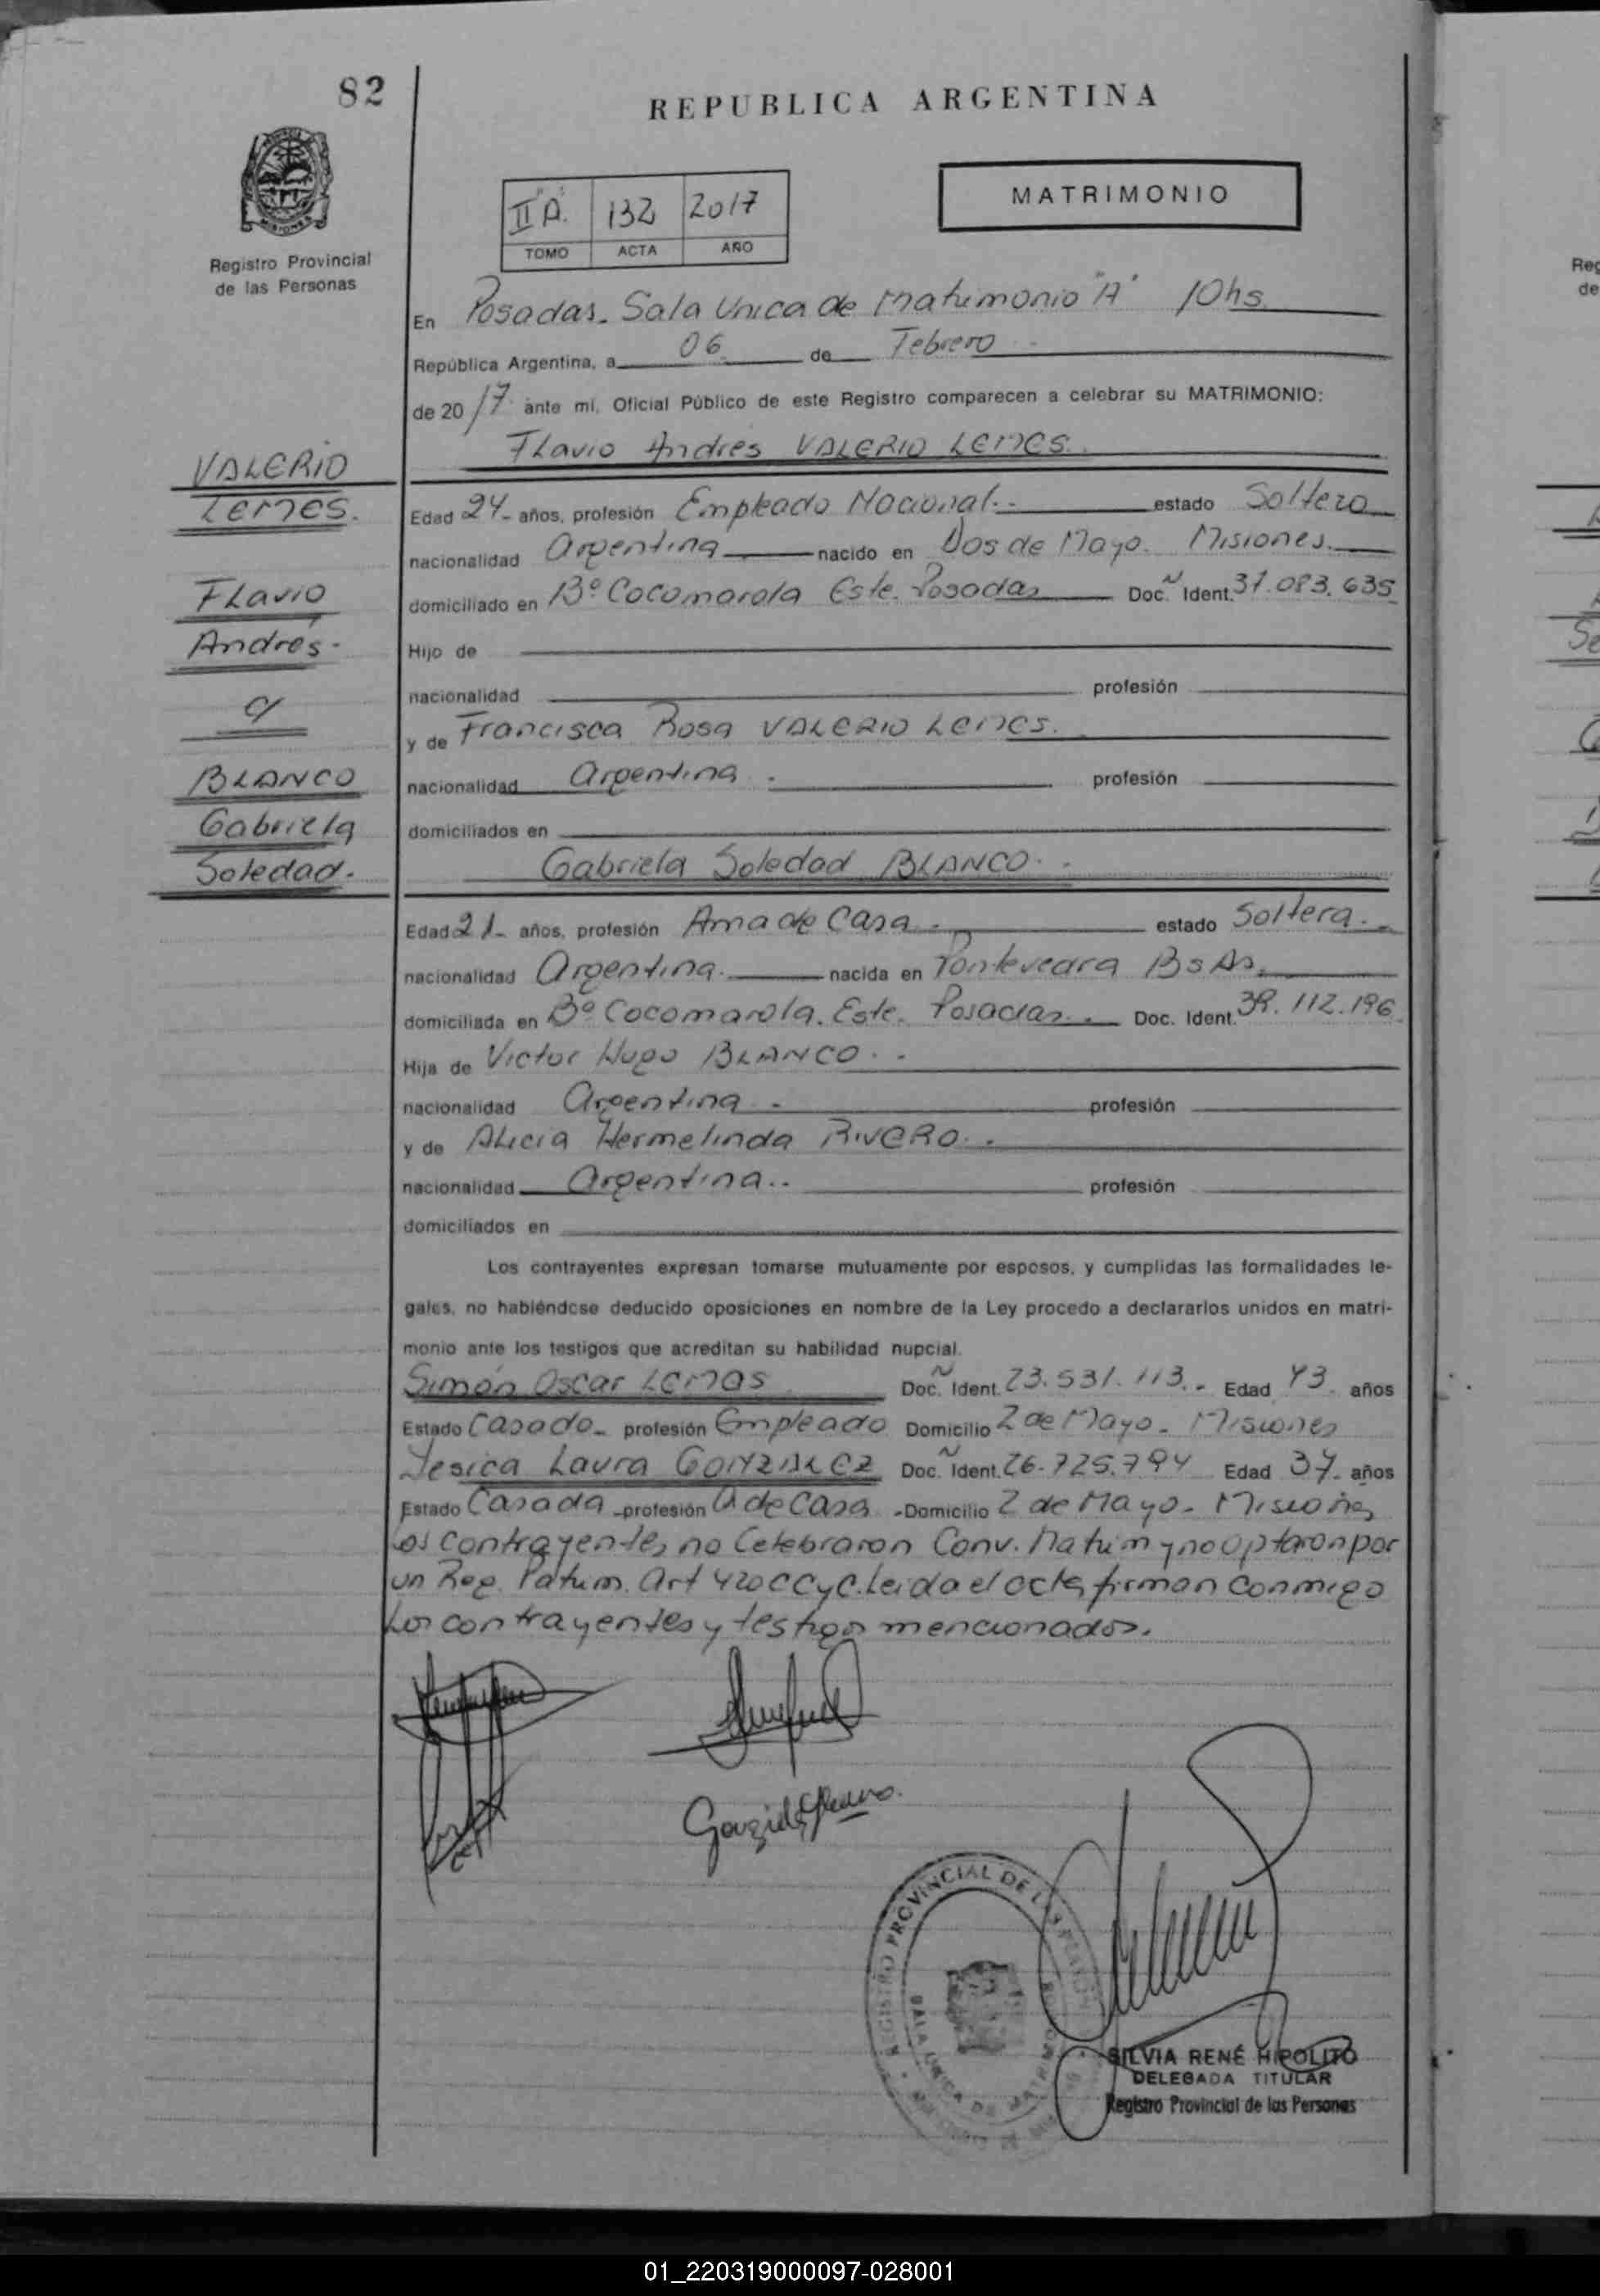 82
REPUBLICA ARGENTINA
MATRIMONIO
II A. 132 2017
TOMO ACTA AÑO
Registro Provincial
de las Personas
En Posadas. Sala Unica de Matrimonio "A" 10hs.
República Argentina, a 06 de Febrero
de 2017 ante mi, Oficial Público de este Registro comparecen a celebrar su MATRIMONIO:
Flavio Andres VALERIO LEMES.
VALERIO
LEMES.
Flavio
Andrés-
c/
BLANCO
Gabriela
Soledad.
Edad 24- años, profesión Empleado Nacional.- estado Soltero
nacionalidad Argentina nacido en Dos de Mayo. Misiones.
domiciliado en Bº Cocomarola Este. Posadas Doc. Ident. 37.083.635
Hijo de
nacionalidad profesión
y de Francisca Rosa VALERIO LEMES.
nacionalidad Argentina. profesión
domiciliados en
Gabriela Soledad BLANCO.
Edad 21- años, profesión Ama de Casa. estado Soltera.
nacionalidad Argentina. nacida en Pontevedra Bs As.
domiciliada en Bº Cocomarola. Este. Posadas. Doc. Ident. 39.112.196
Hija de Victor Hugo BLANCO..
nacionalidad Argentina. profesión
y de Alicia Hermelinda RIVERO..
nacionalidad Argentina.. profesión
domiciliados en
Los contrayentes expresan tomarse mutuamente por esposos, y cumplidas las formalidades le-
gales, no habiéndose deducido oposiciones en nombre de la Ley procedo a declararlos unidos en matri-
monio ante los testigos que acreditan su habilidad nupcial.
Simón Oscar LEMOS Doc. Ident. 23.531.113.- Edad 43. años
Estado Casado- profesión Empleado Domicilio 2 de Mayo. Misiones
Yesica Laura GONZALEZ Doc. Ident. 26.725.794 Edad 37. años
Estado Casada -profesión A de Casa -Domicilio 2 de Mayo- Misiones
Los contrayentes no Celebraron Conv. Matrim y no optaron por
un Reg. Patrim. Art 420 CCyC. Leida el acta, firman conmigo
Los contrayentes y testigos mencionados.
REGISTRO PROVINCIAL DE LAS PERSONAS
SALA UNICA DE MATRIMONIO
SILVIA RENÉ HIPOLITO
DELEGADA TITULAR
Registro Provincial de las Personas
01_220319000097-028001